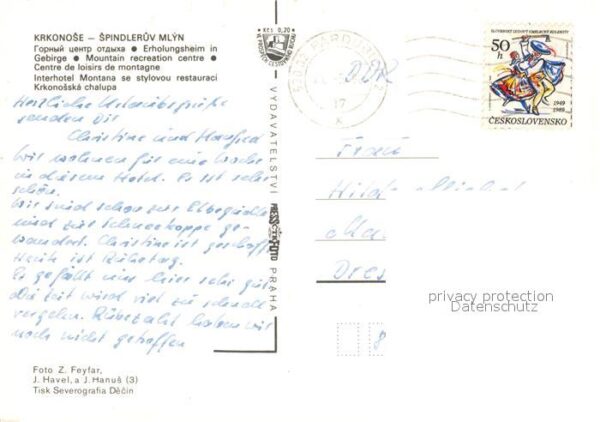 KRKONOŠE – ŠPINDLERŮV MLÝN
Горный центр отдыха ● Erholungsheim in
Gebirge ● Mountain recreation centre ●
Centre de loisirs de montagne
Interhotel Montana se stylovou restaurací
Krkonošská chalupa
Kčs 0,20
VYDAVATELSTVÍ
PRESSFOTO
PRAHA
Herzliche Urlaubsgrüße
senden Dir
Christine und Manfred
Wir wohnen für eine Woche
in diesem Hotel. Es ist sehr
schön.
Wir sind schon zur Elbquelle
und zur Schneekoppe ge-
wandert. Christine ist geschafft
Heute ist Ruhetag.
Es gefällt uns hier sehr gut
Die Zeit wird viel zu schnell
vergehen. Rübezahl haben wir
noch nicht getroffen
Foto Z. Feyfar,
J. Havel, a J. Hanuš (3)
Tisk Severografia Děčín
PARDUBICE 2
17
X
50
h
1949
1989
ČESKOSLOVENSKO
DDR
Frau
Hilde
Dres
8
privacy protection
Datenschutz